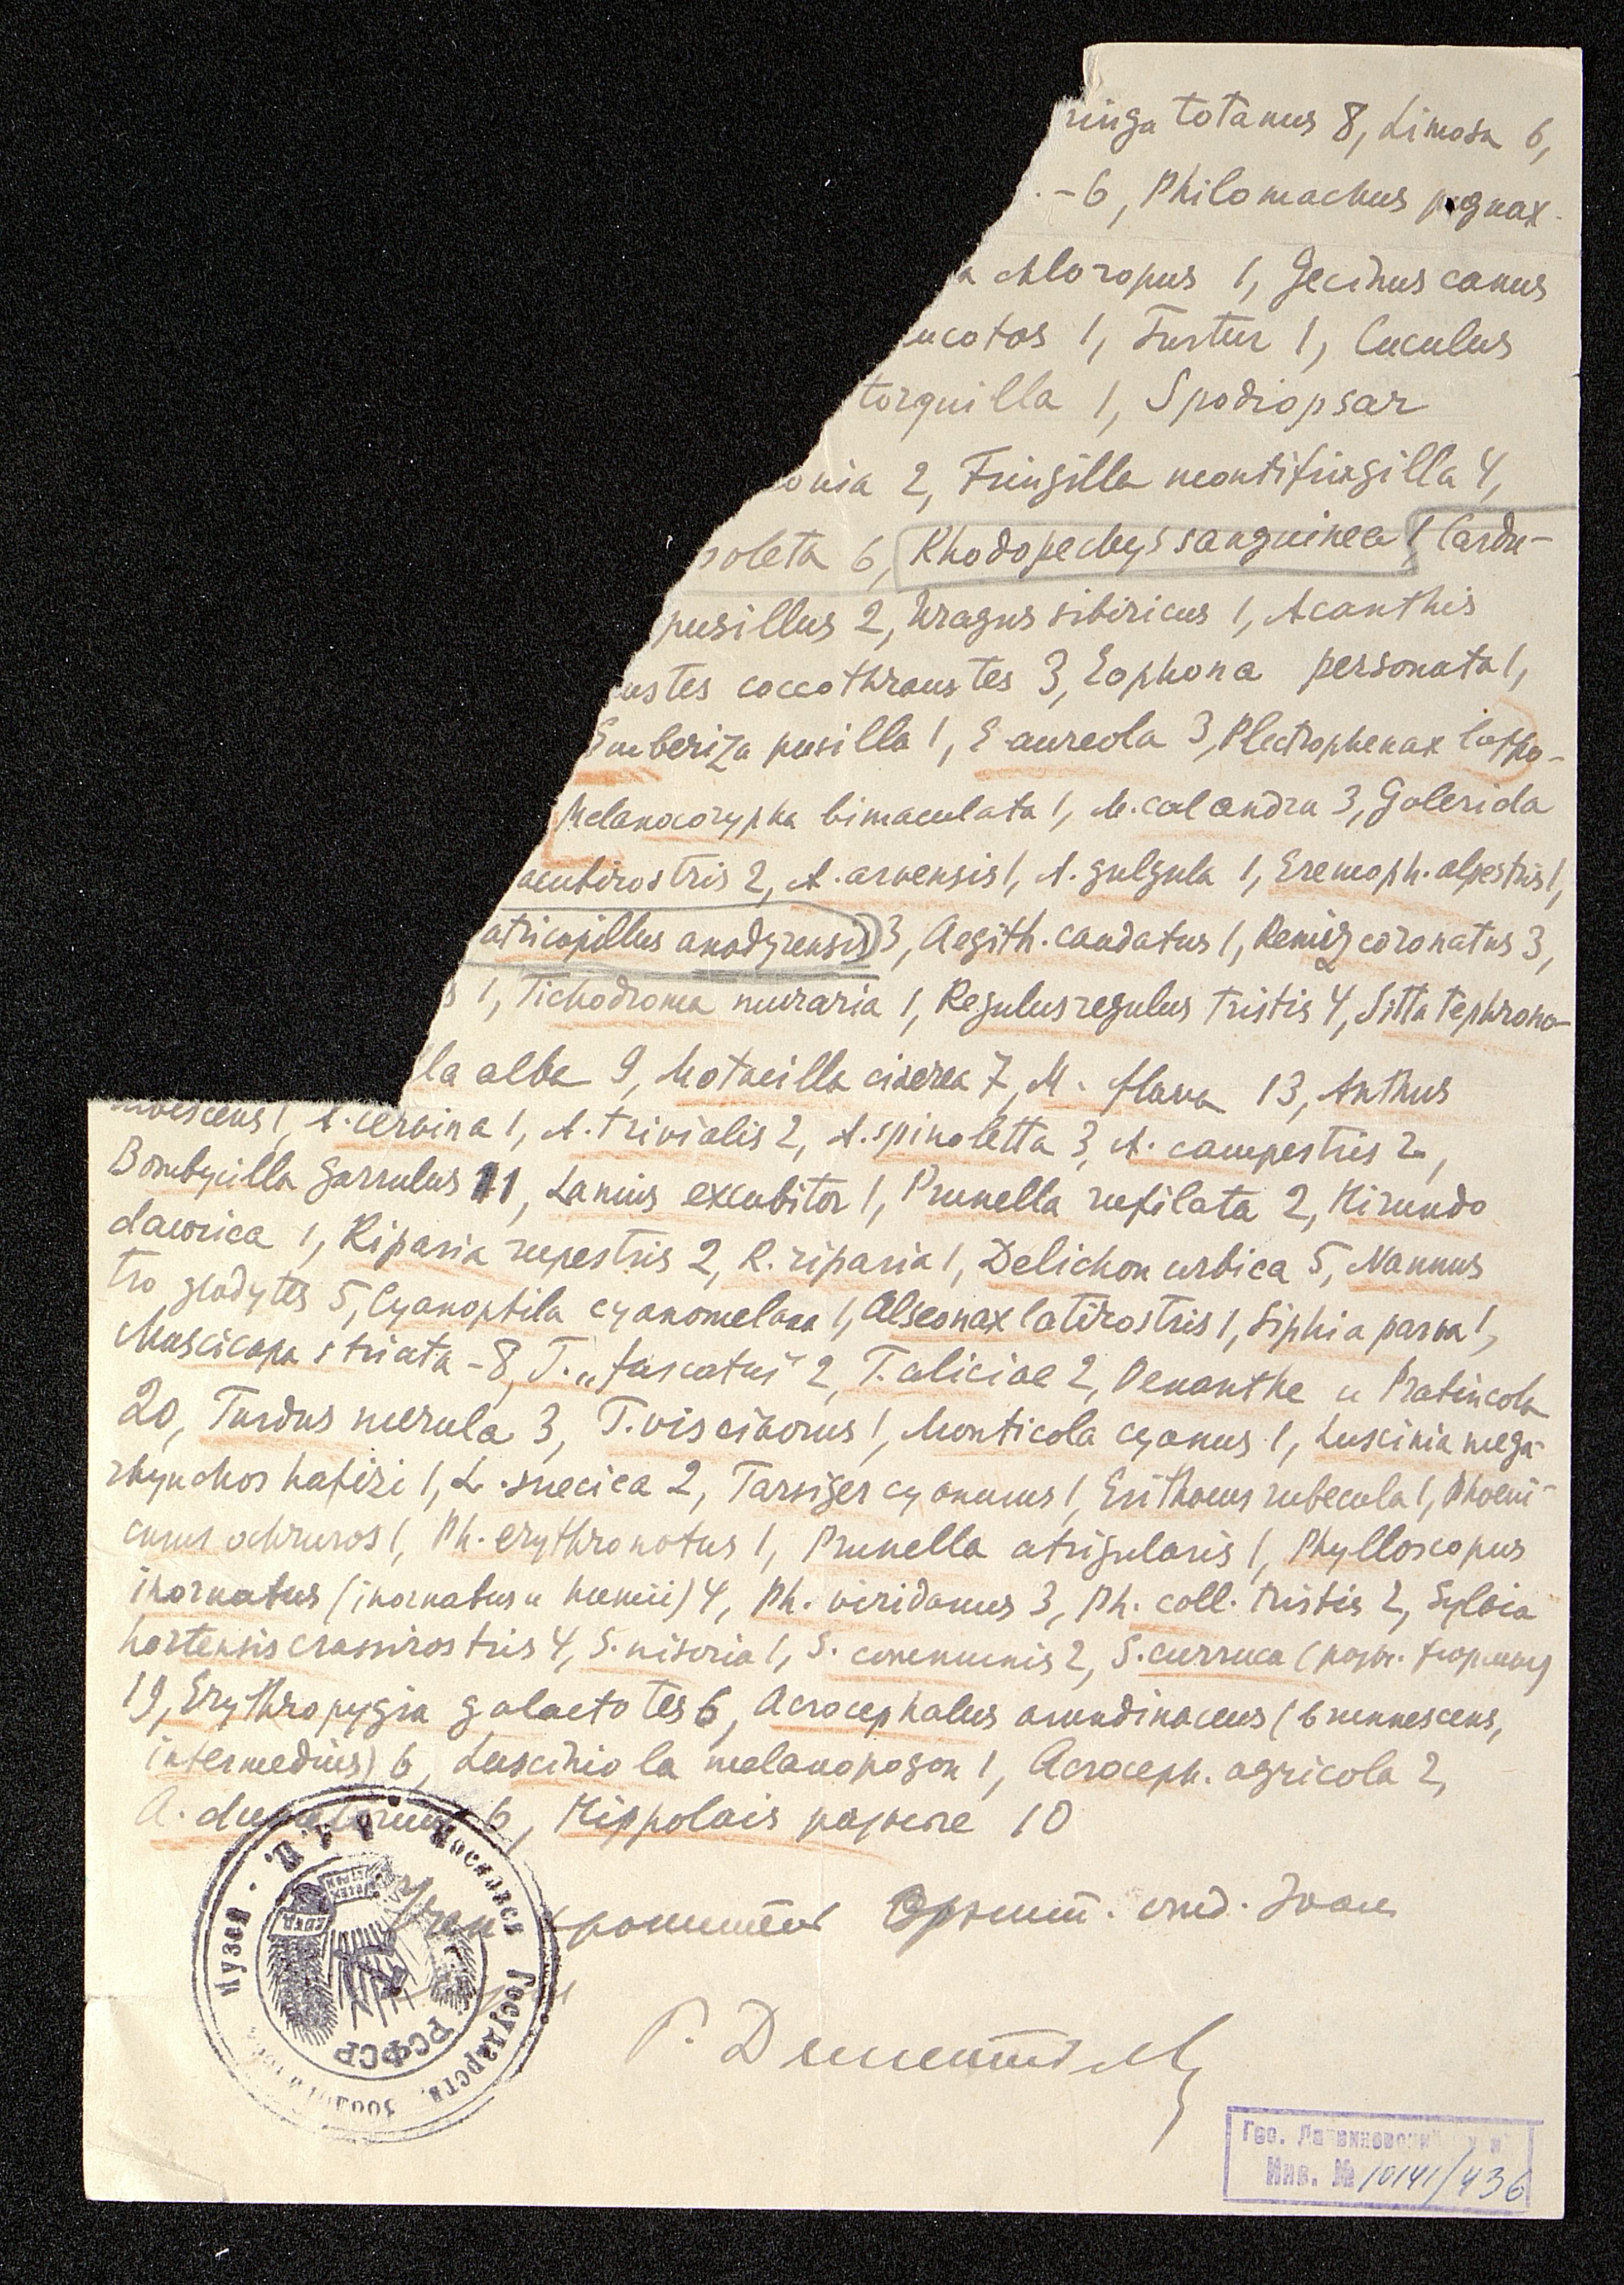 ringa totanus 8, Limosa 6,
- 6, Philomachus pugnax -
a chloropus 1, Gecinus canus
ucotos 1, Turtur 1, Cuculus
torquilla 1, Spodiopsar
onia 2, Fringilla montifringilla 4,
soleta 6, Rhodopechys sanguinea 1, Cardu-
pusillus 2, Uragus sibiricus 1, Acanthis
ustes coccothraustes 3, Eophona personata 1,
Emberiza pusilla 1, E aureola 3, Plectrophenax lappo-
Melanocorypha bimaculata 1, M. calandra 3, Galerida
acutirostris 2, A. arvensis 1, A. gulgula 1, Eremoph. alpestris 1,
atricapillus anadyrensis) 3, Aegith. caudatus 1, Remiz coronatus 3,
s 1, Tichodroma muraria 1, Regulus regulus tristis 4, Sitta tephrono-
lla alba 9, Motacilla cinerea 7, M. flava 13, Anthus
1, A. cervina 1, A. trivialis 2, A. spinoletta 3, A. campestris 2,
Bombycilla garrulus 11, Lanius excubitor 1, Prunella rufilata 2, Hirundo
daurica 1, Riparia rupestris 2, R. riparia 1, Delichon urbica 5, Nannus
troglodytes 5, Cyanoptila cyanomelana 1, Alseonax latirostris 1, Siphia parva 1,
Muscicapa striata - 8, T. „fuscatus" 2, T. aliciae 2, Oenanthe и Pratincola
20, Turdus merula 3, T. viscivorus 1, Monticola cyanus 1, Luscinia mega-
rhynchos hafizi 1, L. suecica 2, Tarsiger cyanurus 1, Erithacus rubecula 1, Phoeni-
curus ochruros 1, Ph. erythronotus 1, Prunella atrigularis 1, Phylloscopus
inornatus (inornatus и humii) 4, Ph. viridanus 3, Ph. coll. tristis 2, Sylvia
hortensis crassirostris 4, S. nisoria 1, S. communis 2, S. curruca (разн. формы)
19, Erythropygia galactotes 6, Acrocephalus arundinaceus (brunnescens,
intermedius) 6, Lusciniola melanopogon 1, Acroceph. agricola 2,
A. dumetorum 6, Hippolais разные 10
хранитель Орнит. отд. Зоол.
Г. Дементьев
Музей Московск Государств.
РСФСР
Инв. № 10141/436